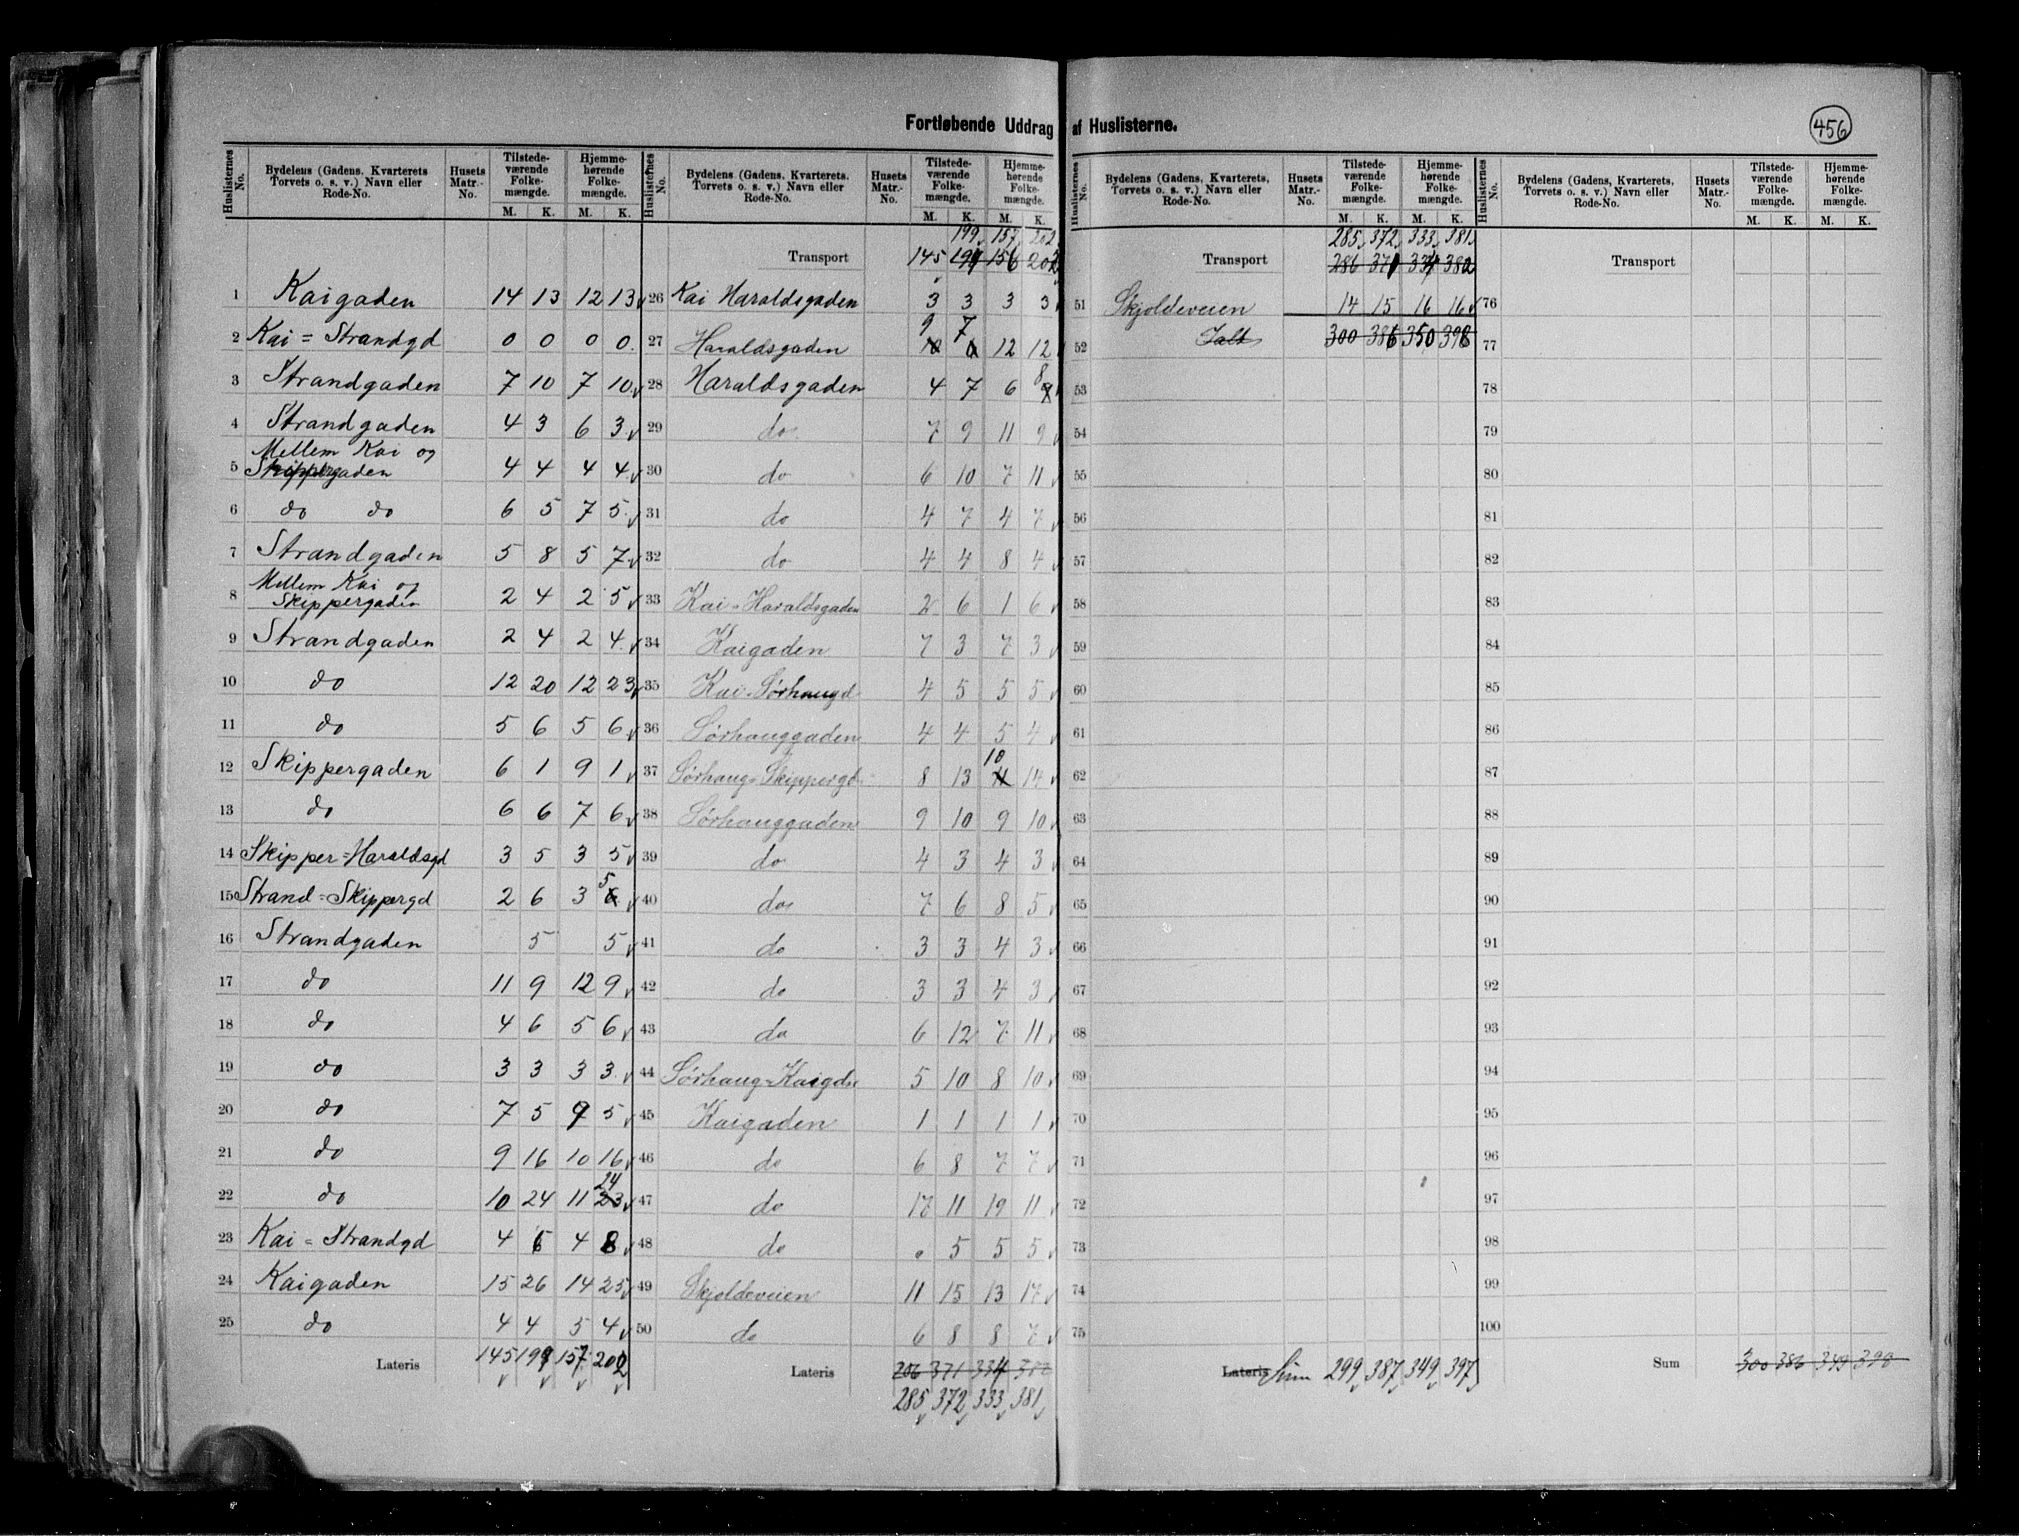 Fortløbende Uddrag af Huslisterne.
456
Huslisternes No. | Bydelens (Gadens, Kvarterets Torvets o. s. v.) Navn eller Rode-No. | Husets Matr.-No. | Tilstedeværende Folkemængde. M. K. | Hjemmehørende Folkemængde. M. K.
1 Kaigaden 14 13 12 13
2 Kai = Strandgd 0 0 0 0
3 Strandgaden 7 10 7 10
4 Strandgaden 4 3 6 3
Mellem Kai og
5 Skippergaden 4 4 4 4
6 do do 6 5 7 5
7 Strandgaden 5 8 5 7
Mellem Kai og
8 Skippergaden 2 4 2 5
9 Strandgaden 2 4 2 4
10 do 12 20 12 23
11 do 5 6 5 6
12 Skippergaden 6 1 9 1
13 do 6 6 7 6
14 Skipper=Haraldsgd 3 5 3 5
15 Strand=Skippergd 2 6 3 6 5
16 Strandgaden 5 5
17 do 11 9 12 9
18 do 4 6 5 6
19 do 3 3 3 3
20 do 7 5 9 5
21 do 9 16 10 16
22 do 10 24 11 23 24
23 Kai = Strandgd 4 6 4 8
24 Kaigaden 15 26 14 25
25 do 4 4 5 4
Lateris 145 199 157 202
Huslisternes No. | Bydelens (Gadens, Kvarterets, Torvets o. s. v.) Navn eller Rode-No. | Husets Matr.-No. | Tilstedeværende Folkemængde. M. K. | Hjemmehørende Folkemængde. M. K.
199 157 202
Transport 145 199 156 202
26 Kai Haraldsgaden 3 3 3 3
9 7
27 Haraldsgaden 12 12
28 Haraldsgaden 4 7 6 8
29 do 7 9 11 9
30 do 6 10 7 11
31 do 4 7 4 7
32 do 4 4 8 4
33 Kai=Haraldsgaden 2 6 1 6
34 Kaigaden 7 3 7 3
35 Kai=Sørhaugd 4 5 5 5
36 Sørhauggaden 4 4 5 4
10
37 Sørhaug=Skippergd 8 13 14
38 Sørhauggaden 9 10 9 10
39 do 4 3 4 3
40 do 7 6 8 5
41 do 3 3 4 3
42 do 3 3 4 3
43 do 6 12 7 11
44 Sørhaug=Kaigdn 5 10 8 10
45 Kaigaden 1 1 1 1
46 do 6 8 7 7
47 do 17 11 19 11
48 do 0 5 5 5
49 Skjoldeveien 11 15 13 17
50 do 6 8 8 7
Lateris 286 371 334 382
285 372 333 381
Huslisternes No. | Bydelens (Gadens, Kvarterets, Torvets o. s. v.) Navn eller Rode-No. | Husets Matr.-No. | Tilstedeværende Folkemængde. M. K. | Hjemmehørende Folkemængde. M. K.
285 372 333 381
Transport 286 371 334 382
51 Skjoldeveien 14 15 16 16
52 Ialt 300 386 350 398
53
54
55
56
57
58
59
60
61
62
63
64
65
66
67
68
69
70
71
72
73
74
75
Lateris Sum 299 387 349 397
Huslisternes No. | Bydelens (Gadens, Kvarterets, Torvets o. s. v.) Navn eller Rode-No. | Husets Matr.-No. | Tilstedeværende Folkemængde. M. K. | Hjemmehørende Folkemængde. M. K.
Transport
76
77
78
79
80
81
82
83
84
85
86
87
88
89
90
91
92
93
94
95
96
97
98
99
100
Sum 300 386 349 398